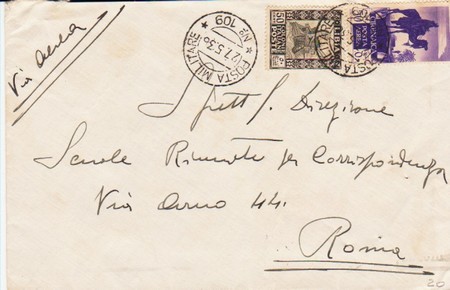 Via Aerea
POSTA MILITARE
Nº. 109
Spett. Direzione
Scuole Riunite per Corrispondenza
Via Arno 44.
Roma
20